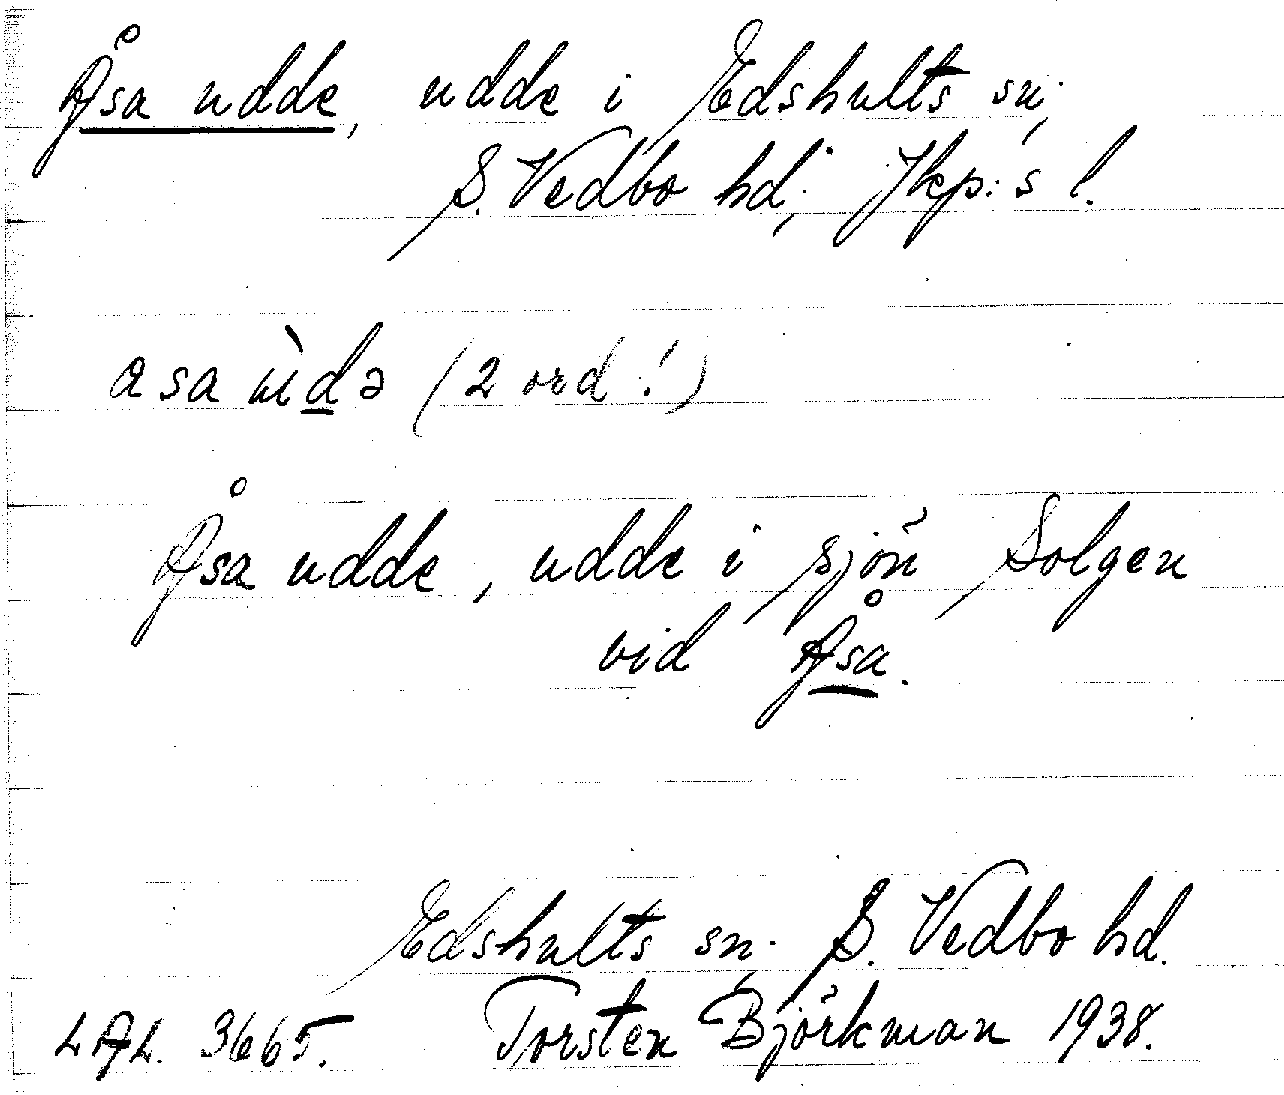 Åsa udde, udde i Edshults sn,
S. Vedbo hd, Jkp:s l.
asa ùdə (2 ord!)
Åsa udde, udde i sjön Solgen
vid Åsa.
Edshults sn. S. Vedbo hd.
LAL. 3665. Torsten Björkman 1938.